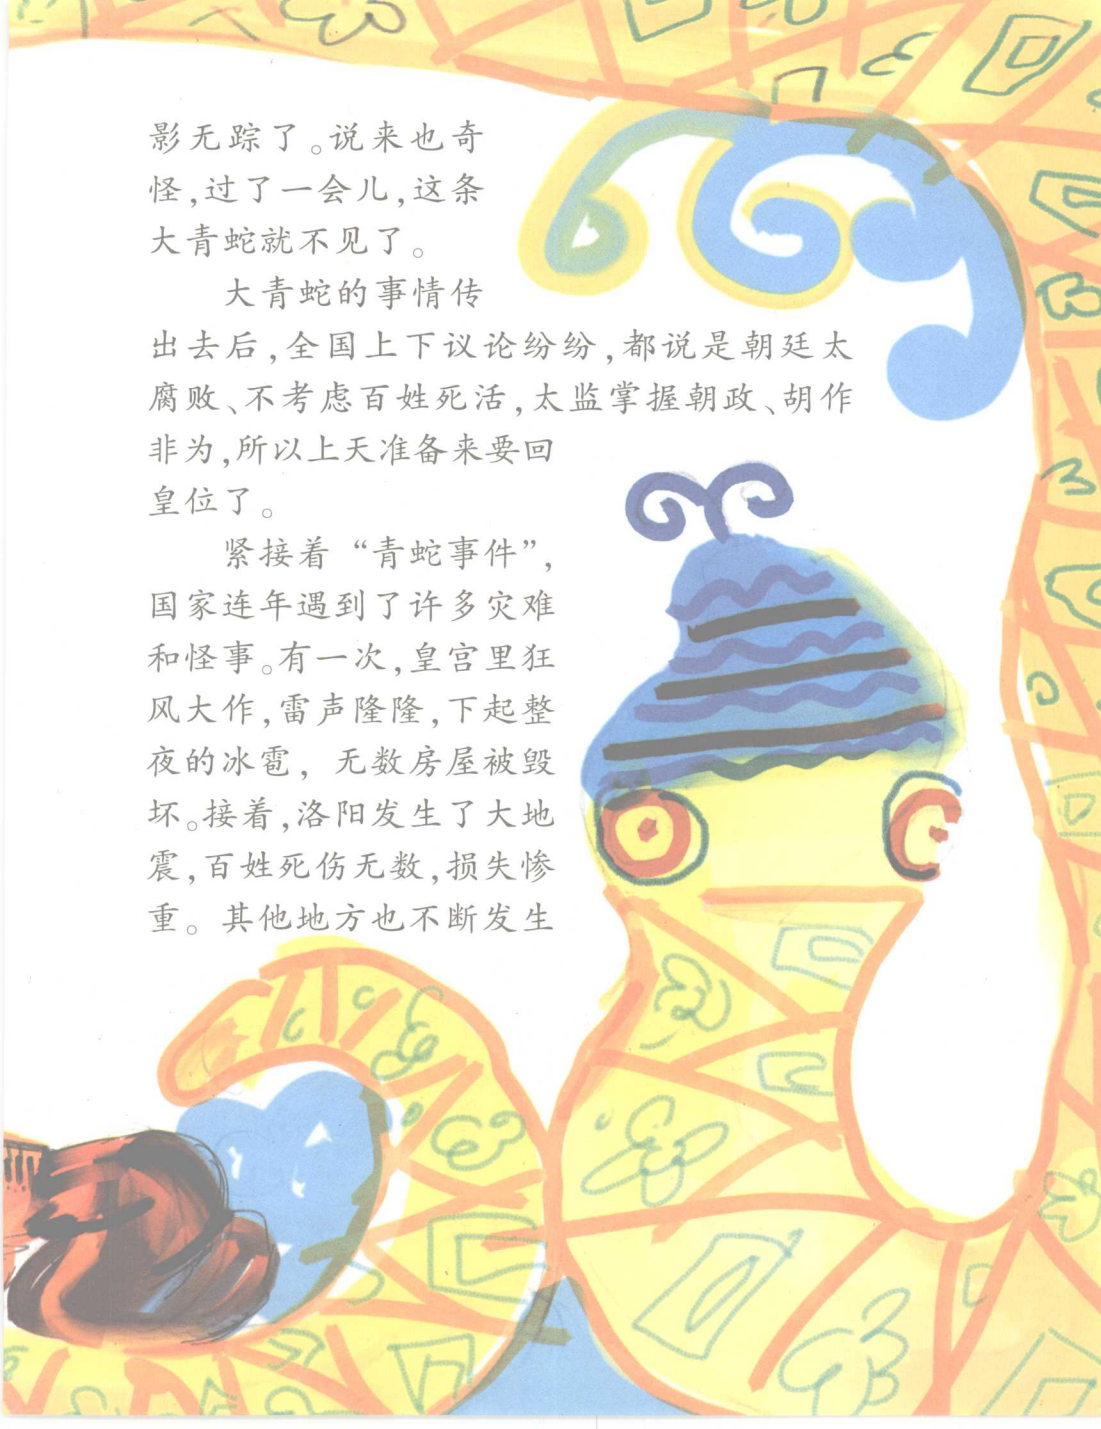 影无踪了。说来也奇
怪,过了一会儿,这条
大青蛇就不见了。
大青蛇的事情传
出去后,全国上下议论纷纷,都说是朝廷太
腐败、不考虑百姓死活,太监掌握朝政、胡作
非为,所以上天准备来要回
皇位了。
紧接着“青蛇事件”,
国家连年遇到了许多灾难
和怪事。有一次,皇宫里狂
风大作,雷声隆隆,下起整
夜的冰雹,无数房屋被毁
坏。接着,洛阳发生了大地
震,百姓死伤无数,损失惨
重。其他地方也不断发生